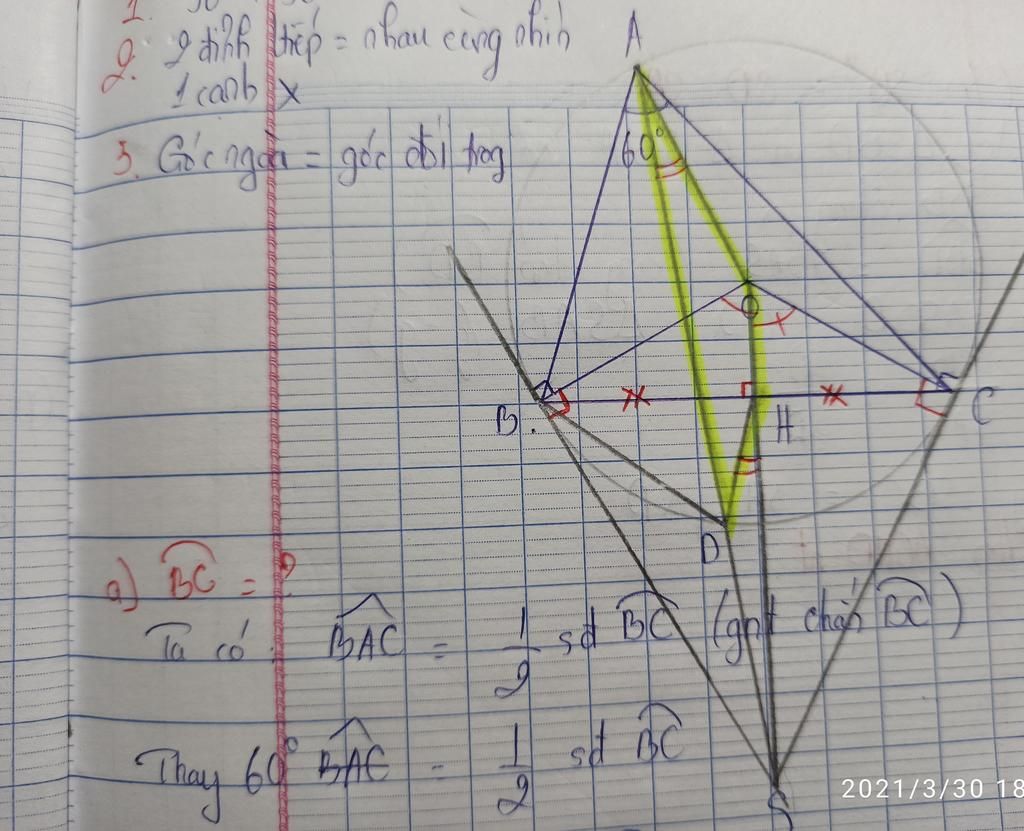 1.
2. 2 đỉnh tiếp = nhau cùng nhìn
1 cạnh x
3. Góc ngoài = góc đối trog
A
60°
O
x
B.
H
C
D
a) BC = ?
Ta có: BAC = 1/2 sđ BC (gnt chắn BC)
Thay 60° BAC = 1/2 sđ BC
S
2021/3/30 18